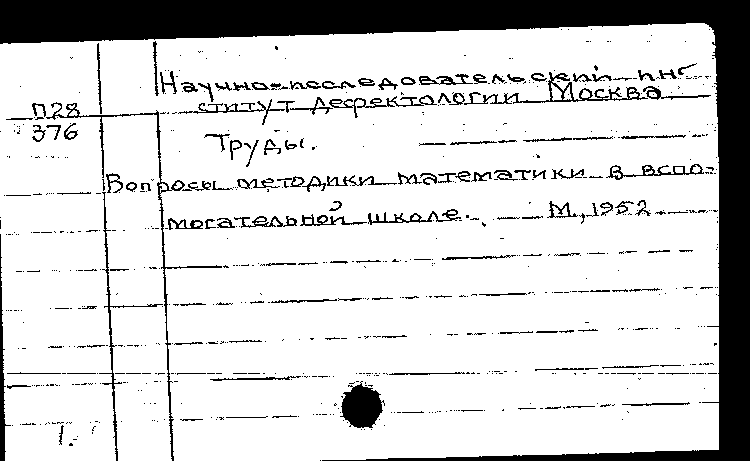 Научно-исследовательский инс-
П28 ститут дефектологии. Москва.
376 Труды.
Вопросы методики математики в вспо-
могательной школе. М., 1952.
1.